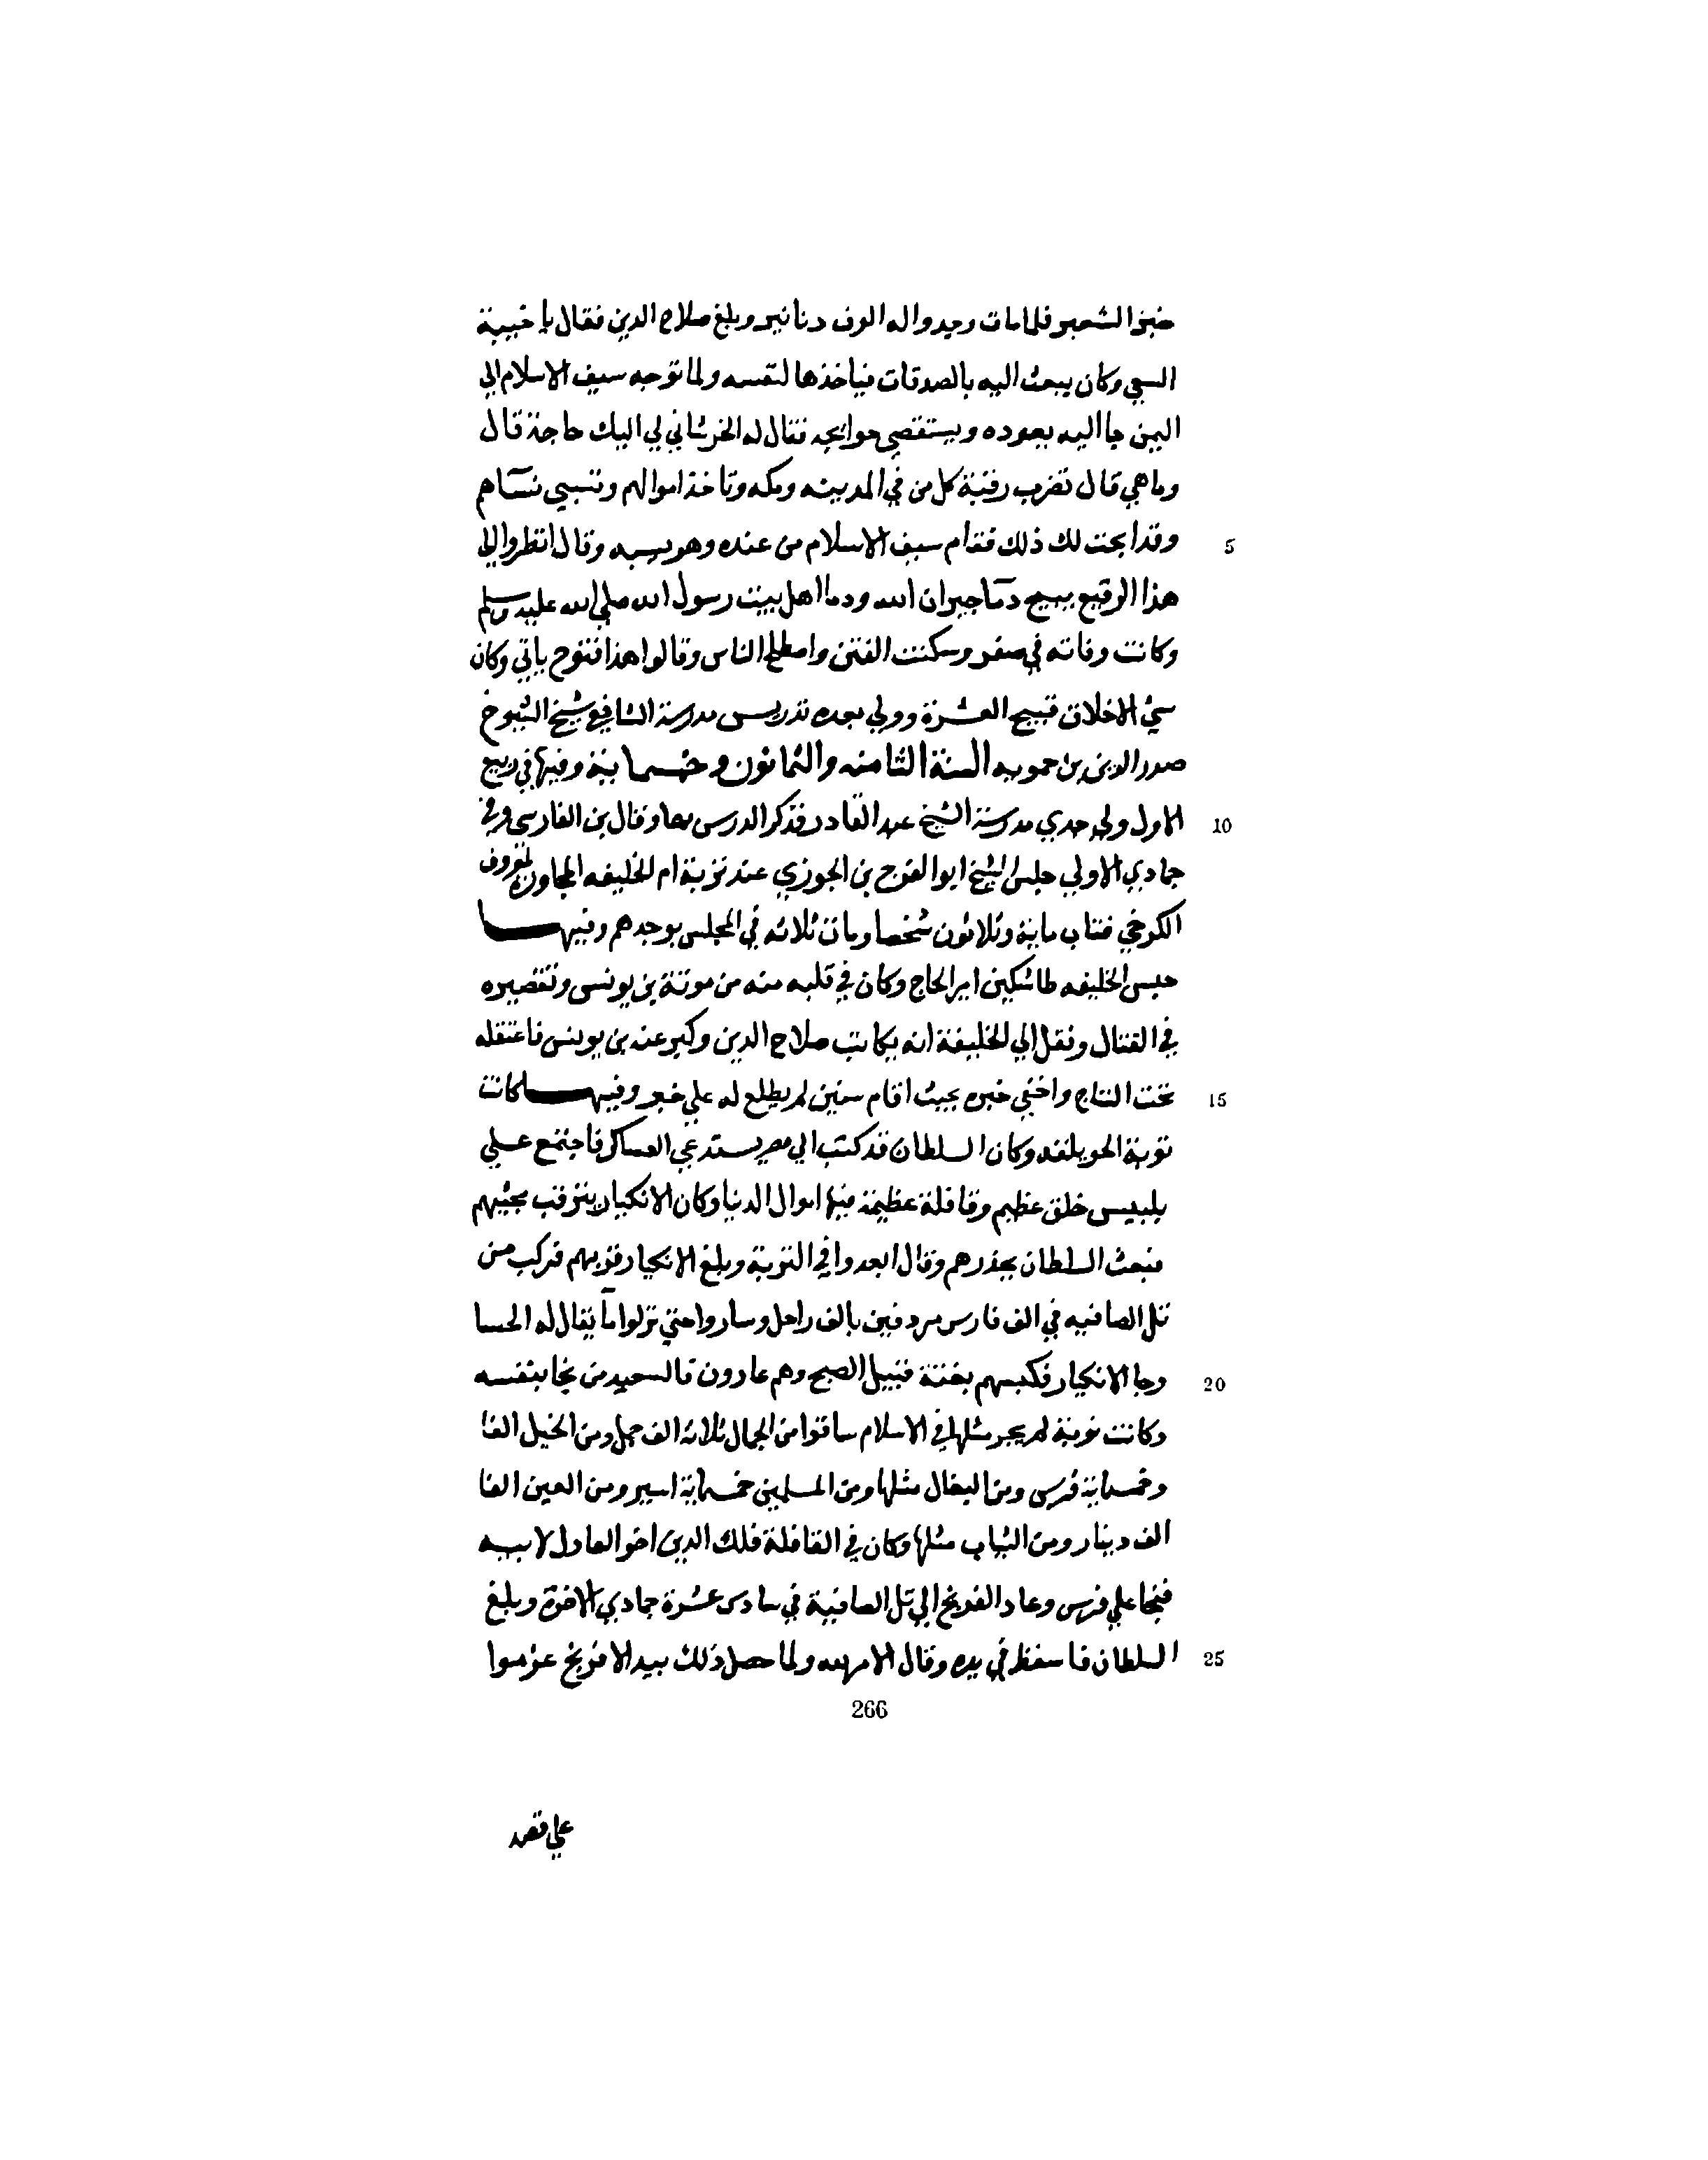 خبز الشعير فلما مات وجدوا له الوف دنانير وبلغ صلاح الدين فقال يا خيبة
السعي وكان يبعث اليه بالصدقات فياخذها لنفسه ولما توجه سيف الاسلام الي
اليمن جا اليه يعوده ويستقضي حوائجه فقال له الخبشاني لي اليك حاجة قال
وما هي قال تضرب رقبة كل من في المدينه ومكه وتاخذ اموالهم وتسبي نسآهم
5 وقد ابحت لك ذلك فقام سيف الاسلام من عنده وهو يسبه وقال انظروا الي
هذا الرقيع يبيح دمآ جيران الله ودما اهل بيت رسول الله صلي الله عليه وسلم
وكانت وفاته في صفر وسكنت الفتن واصطلح الناس وقالوا هذا فتوح ياتي وكان
سيئ الاخلاق قبيح العشرة وولي بعده تدريس مدرسة الشافعي شيخ الشيوخ
صدر الدين بن حمويه السنة الثامنه والثمانون وخمسماية وفيها في ربيع
10 الاول ولي جدي مدرسة الشيخ عبد القادر فذكر الدرس بها وقال بن القادسي وفي
جمادي الاولي جلس الشيخ ابوا الفرج بن الجوزي عند تربة ام الخليفه المجاورة لمعروف
الكرخي فتاب ماية وثلاثون شخصا ومات ثلاثه في المجلس بوجدهم وفيها
حبس الخليفه طاشتكين امير الحاج وكان في قلبه منه من موتة بن يونس وتقصيره
في القتال ونقل الي الخليفة انه يكاتب صلاح الدين وكبر عنه بن يونس فاعتقله
15 تحت التاج واخفي خبره بحيث اقام سنين لم يطلع له علي خبر وفيها كانت
نوبة الحويلفه وكان السلطان قد كتب الي مصر يستدعي العساكر فاجتمع علي
بلبيس خلق عظيم وقافلة عظيمة فيها اموال الدنيا وكان الانكيار يترقب مجيهم
فبعث السلطان يحذرهم وقال ابعدوا في التربة وبلغ الانكيار قربهم فركب من
تل الصافيه في الف فارس مردفين بالف راجل وساروا حتي نزلوا مآ يقال له الحسا
20 وجا الانكيار فكبسهم بغتة قبيل الصبح وهم عارون فالسعيد من نجا بنفسه
وكانت نوبة لم يجر مثلها في الاسلام ساقوا من الجمال ثلاثه الف جمل ومن الخيل الفا
وخمسماية فرس ومن البغال مثلها ومن المسلمين خمسماية اسير ومن العين الفا
الف دينار ومن الثياب مثلها وكان في القافلة فلك الدين اخو العادل لابيه
فنجا علي فرس وعاد الفرنج الي تل الصافية في سادس عشرة جمادي الاخرة وبلغ
25 السلطان فاسقط في يده وقال الامر لله ولما حصل ذلك بيد الافرنج عزموا
266
علي قصد